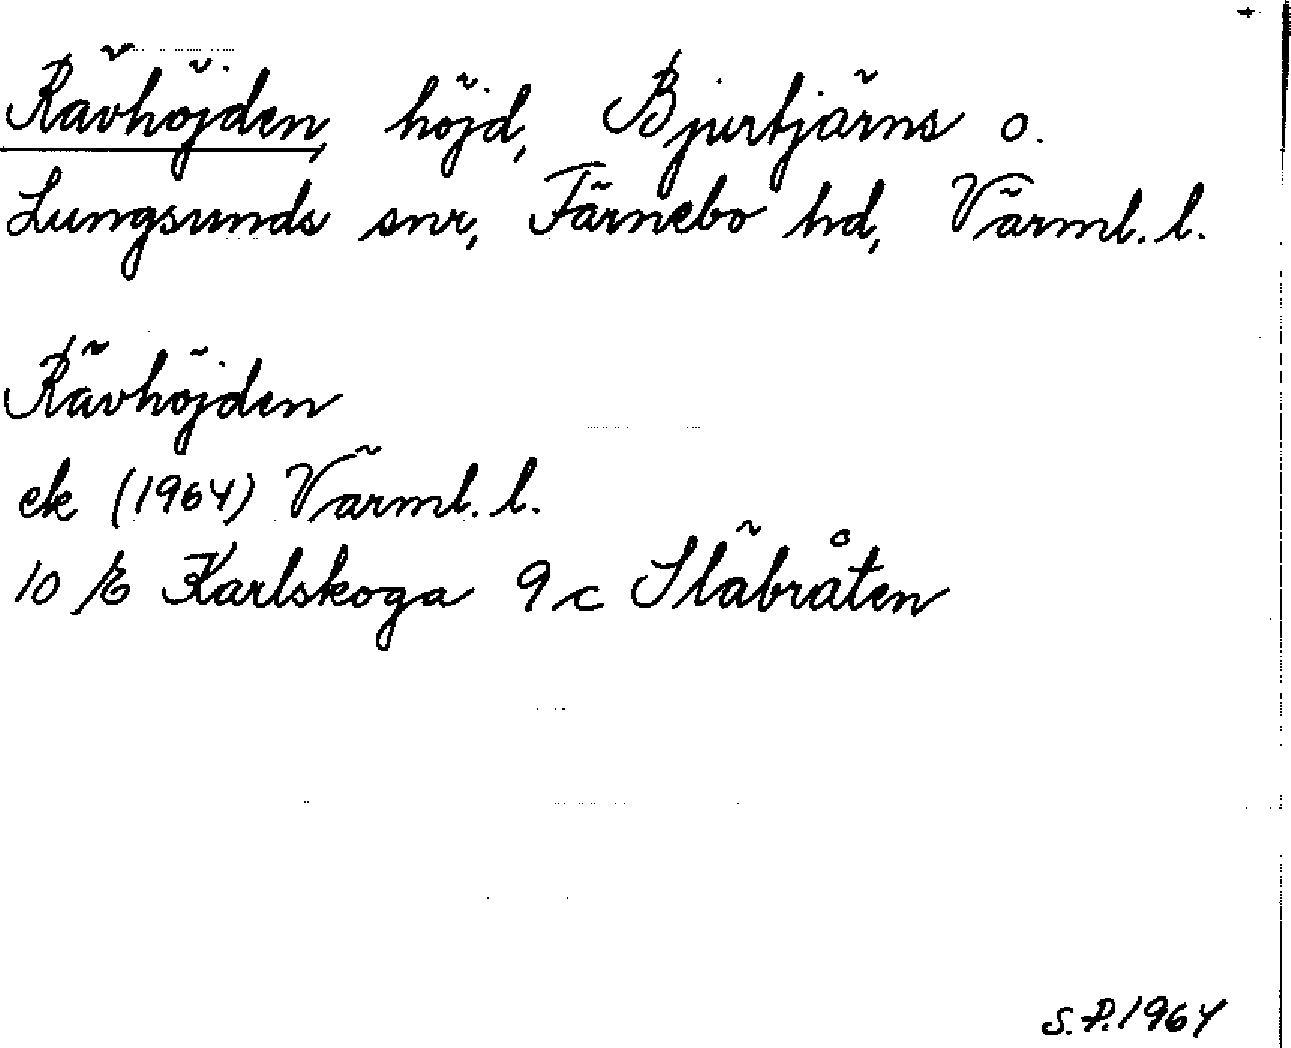 Rävhöjden, höjd, Bjurtjärns o.
Lungsunds snr, Färnebo hd, Värml. l.
Rävhöjden
ek (1964) Värml. l.
10 E Karlskoga 9 c Släbråten
S.P. 1964